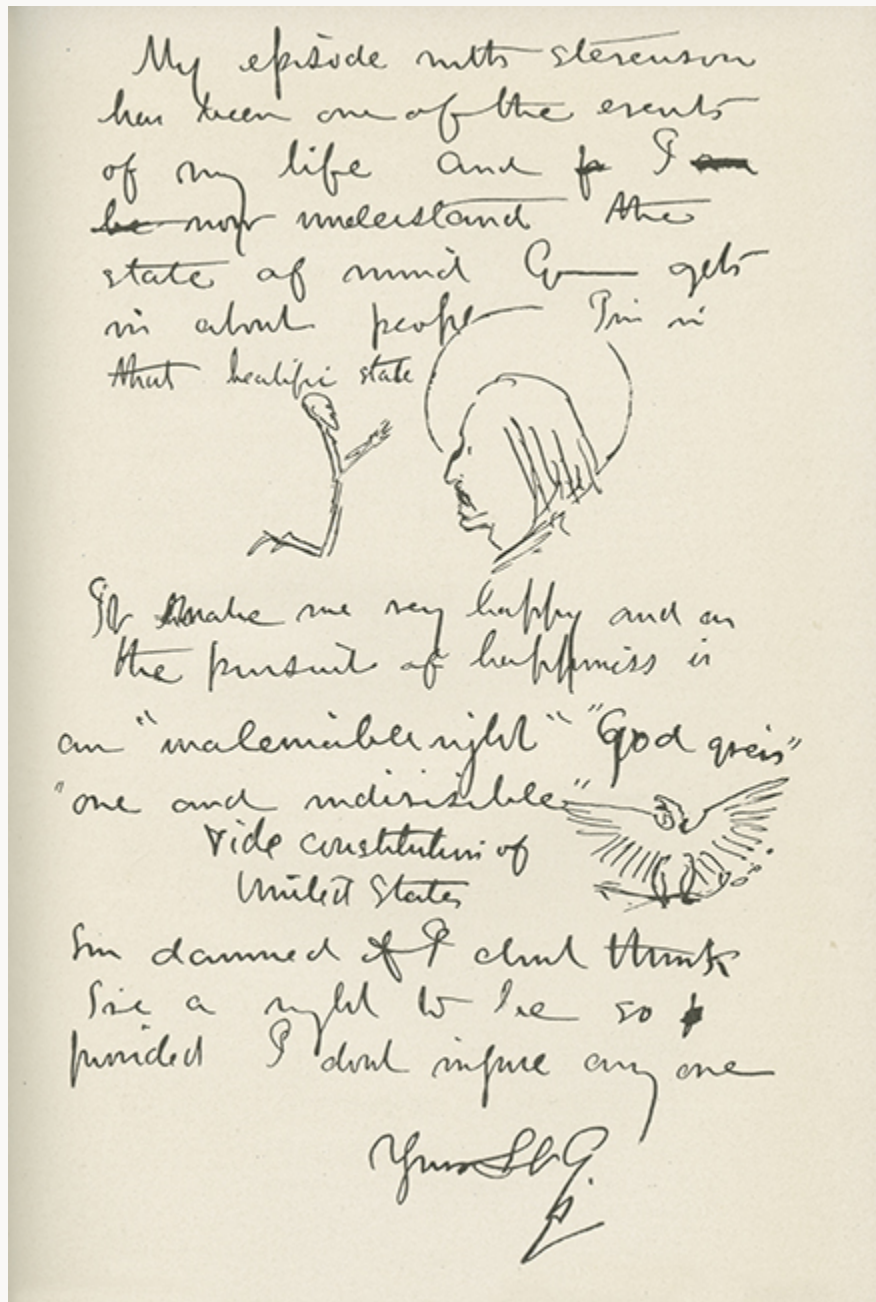 My episode with Stevenson
has been one of the events
of my life and I
now understand the
state of mind G— gets
in about people I'm in
that beatific state
It make me very happy and as
the pursuit of happiness is
an "inalienable right" "God given"
"one and indivisible"
vide constitution of
United States
I'm damned if I dont think
I've a right to be so
provided I dont injure any one
Yours St G